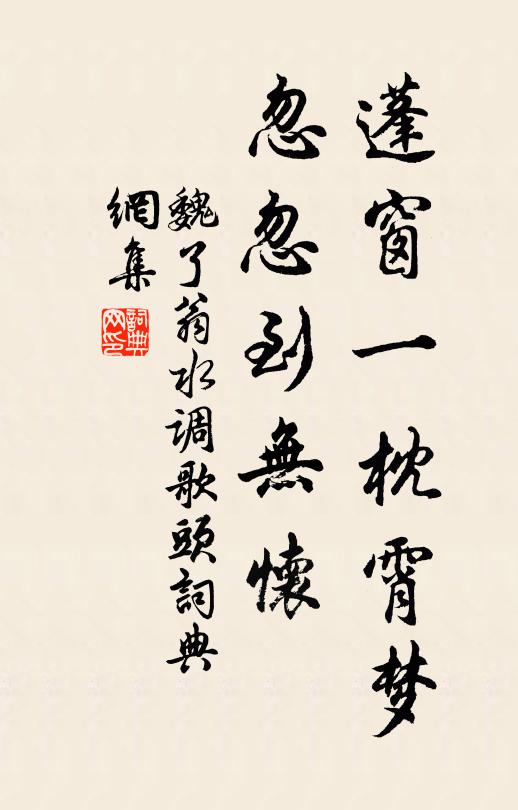 蓬窗一枕霄梦
忽忽到無懷
魏了翁水调歌頭詞典
網集
詞典网印